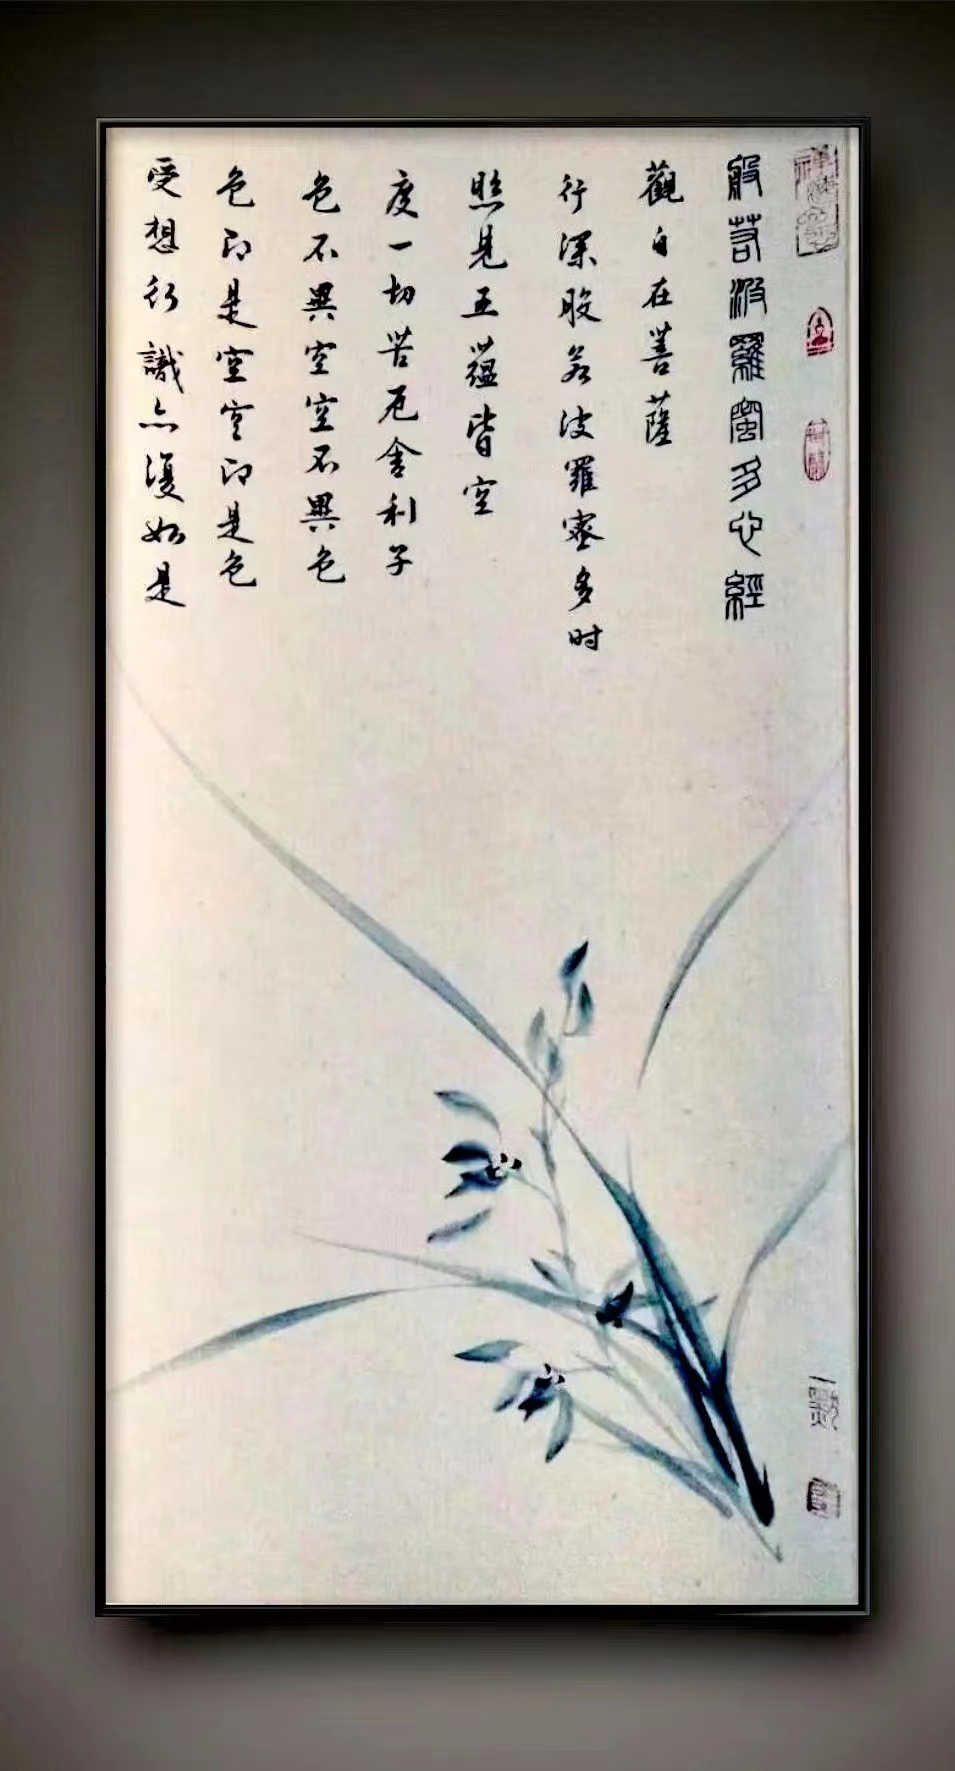 般若波羅蜜多心經
觀自在菩薩
行深般若波羅密多时
照見五蕴皆空
度一切苦厄舍利子
色不異空空不異色
色即是空空即是色
受想行識亦復如是